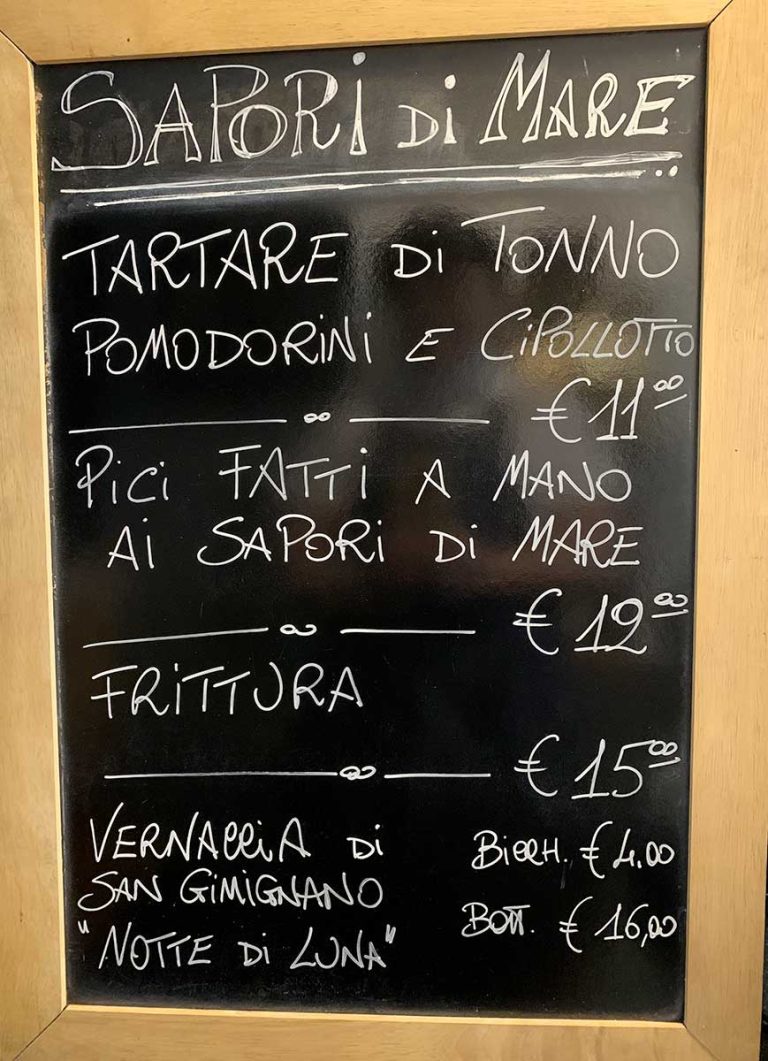 SAPORi Di MARE
TARTARE Di TONNO
POMODORiNi E CiPOLLOTTO
€ 11,00
PiCi FATTi A MANO
Ai SAPORi Di MARE
€ 12,00
FRiTTURA
€ 15,00
VERNACCiA Di BiCCH. € 4.00
SAN GiMiGNANO
BOTT. € 16,00
"NOTTE Di LUNA"